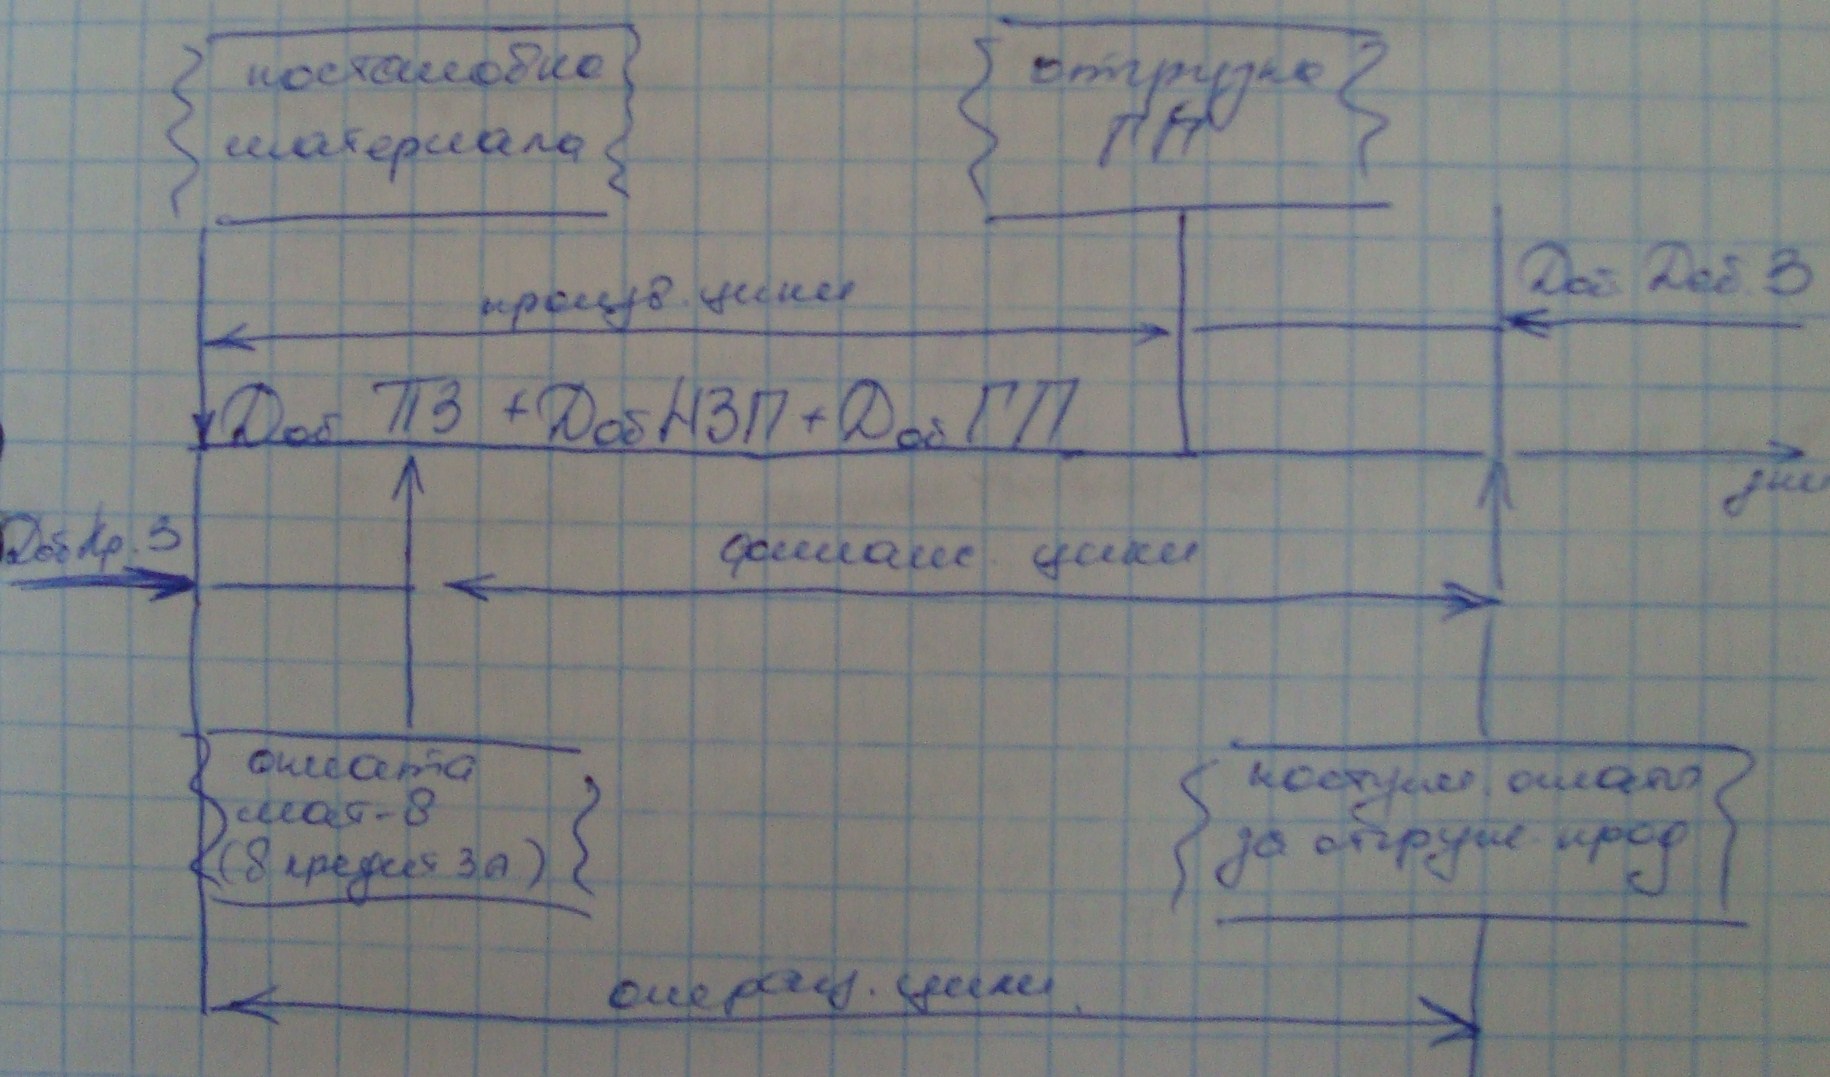 поставка
материала
отгрузка
ГП
произв. цикл
Доб Деб. З
Доб ПЗ + Доб НЗП + Доб ГП
дни
Доб Кр. З
финанс. цикл
оплата
мат-в
(в кредит За)
поступл. оплаты
за отгруж. прод
операц. цикл